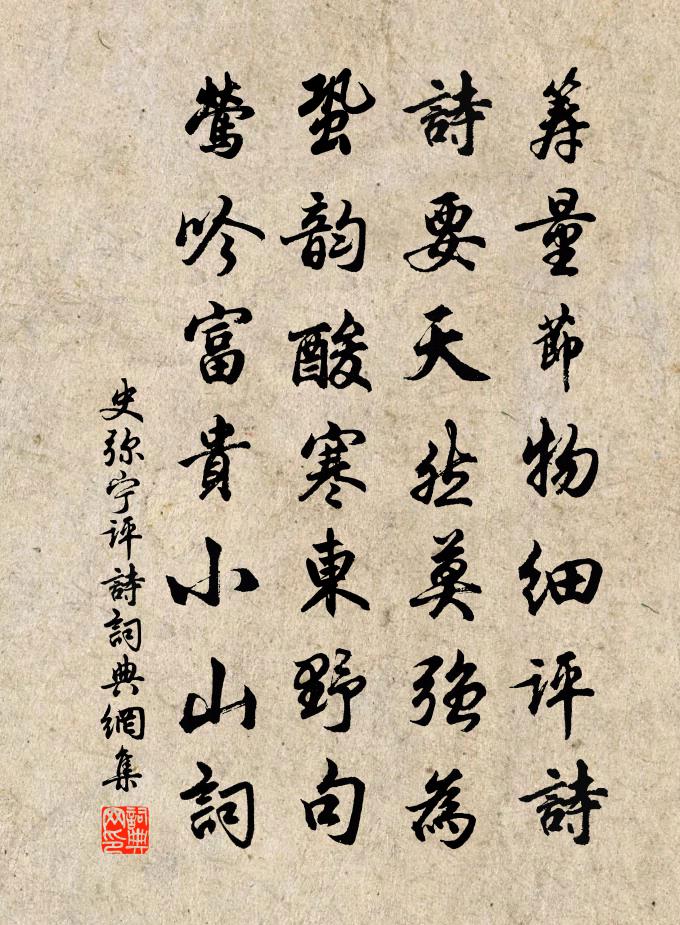 筹量節物細评詩
詩要天然莫強為
蛩韵酸寒東野句
鶯吟富貴小山詞
史弥宁评詩詞典網集
詞典網印